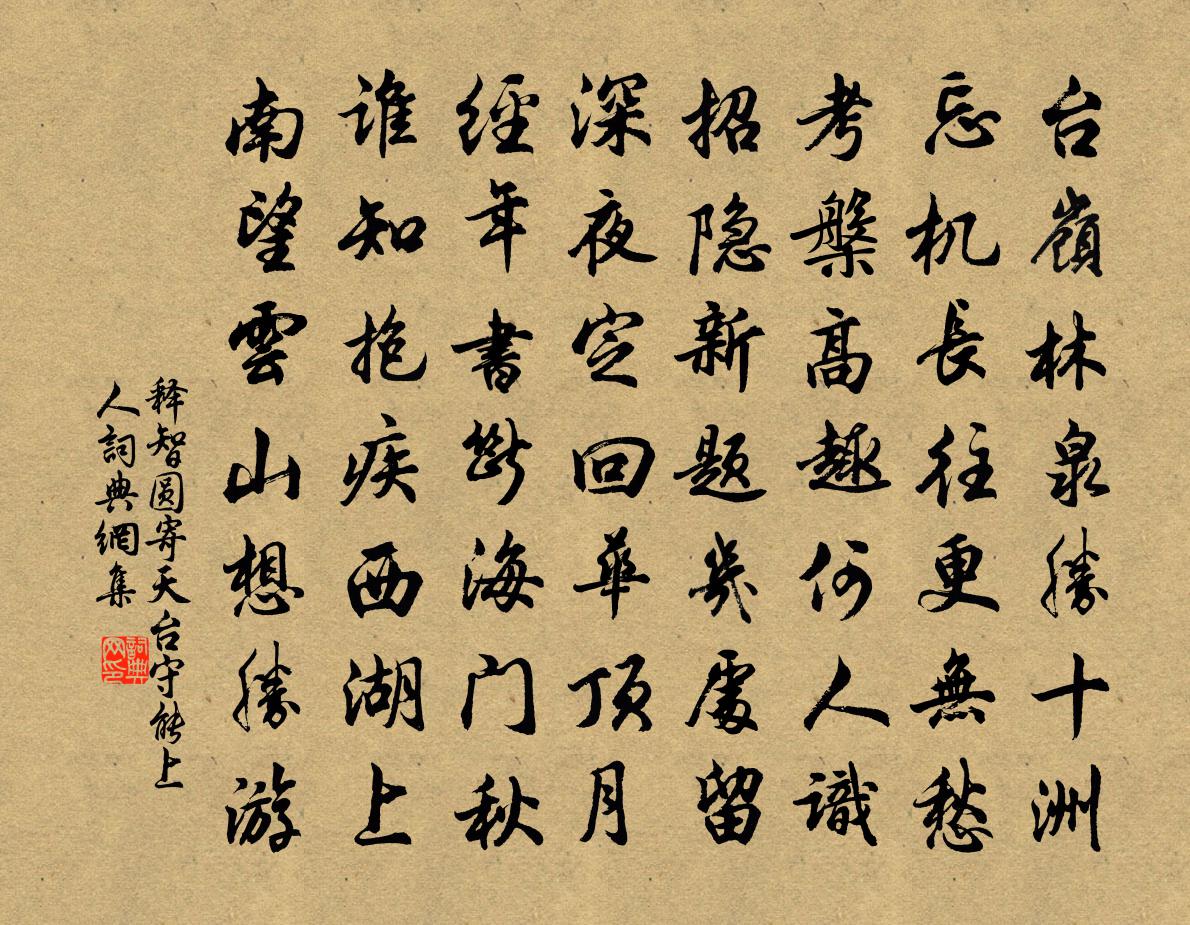 台嶺林泉勝十洲
忘机長往更無愁
考槃高趣何人識
招隐新题幾處留
深夜定回華顶月
經年書断海门秋
谁知抱疾西湖上
南望雲山想勝游
释智圆寄天台守能上
人詞典網集
詞典
网印